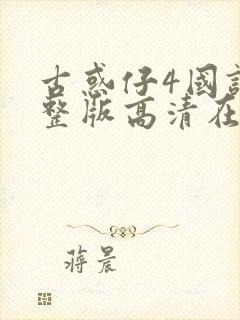 古惑仔4国
整版高清在
蒋晨